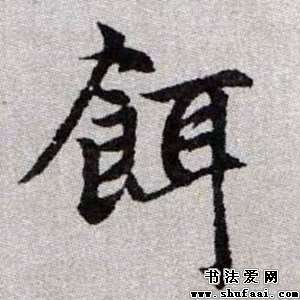 餌
书法爱网
www.shufaai.com